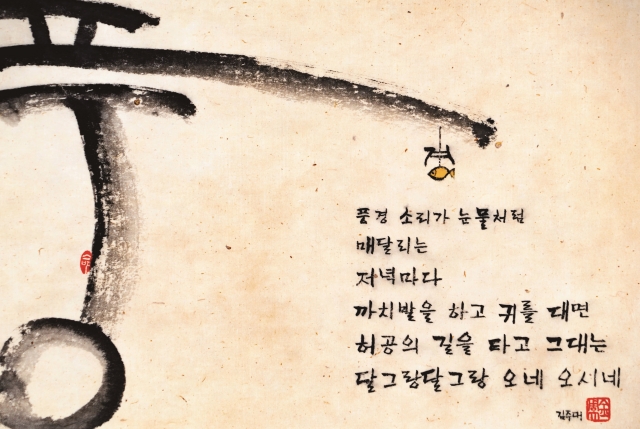 풍경
풍경 소리가 눈물처럼
매달리는
저녁마다
까치발을 하고 귀를 대면
허공의 길을 타고 그대는
달그랑달그랑 오네 오시네
김주대